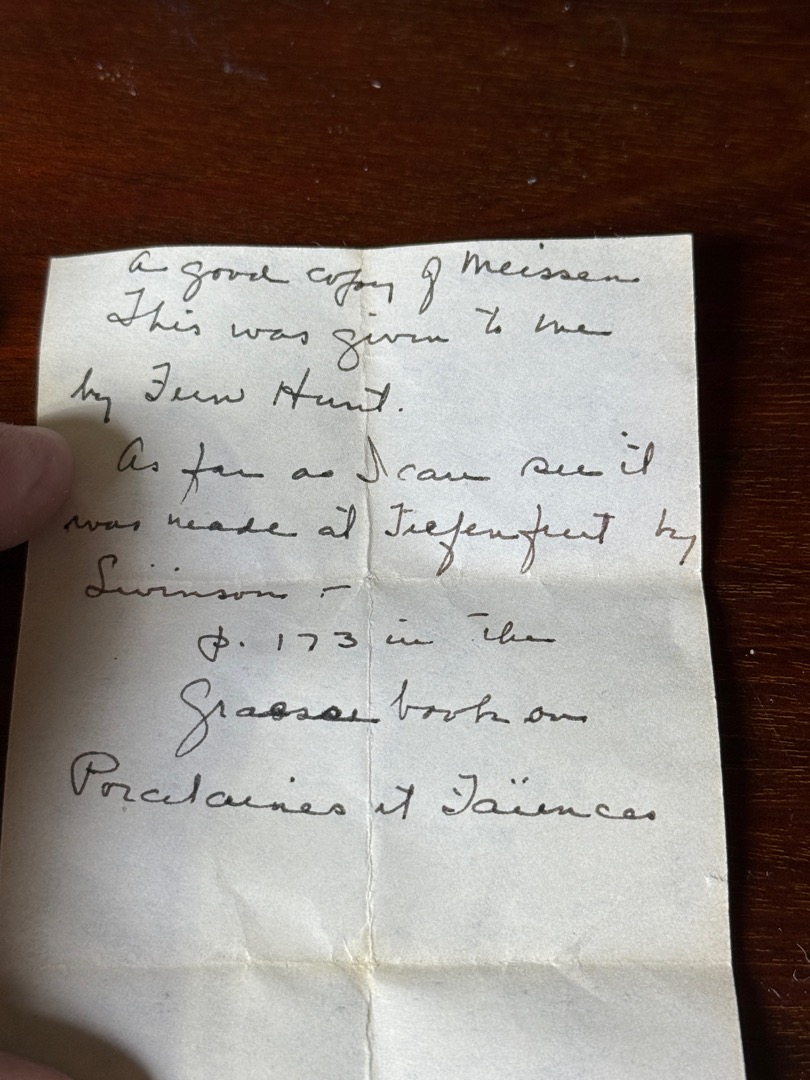 A good copy of Meissen
This was given to me
by Fern Hunt.
As far as I can see it
was made at Tiefenfurt by
– 
p. 173 in the
Graesse book on
Porcelaines et Faïences